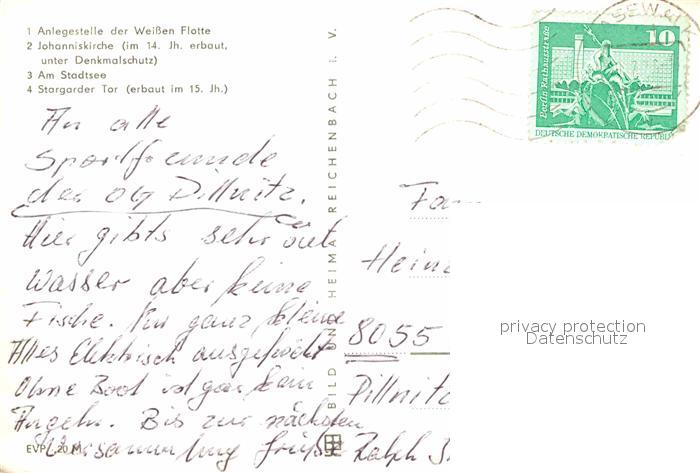 1 Anlegestelle der Weißen Flotte
2 Johanniskirche (im 14. Jh. erbaut,
unter Denkmalschutz)
3 Am Stadtsee
4 Stargarder Tor (erbaut im 15. Jh.)
An alle
Sportfreunde
der OG Pillnitz.
Hier gibts sehr viel
Wasser aber keine
Fische. Nur ganz kleine
Alles Elektrisch ausgefischt
Ohne Boot ist gar kein
Angeln. Bis zur nächsten
Versammlung Grüße Ralph
EVP
BILD UND HEIMAT REICHENBACH I. V.
ASEWALK
10
Berlin Rathausstraße
DEUTSCHE DEMOKRATISCHE REPUBLIK
Fam
Heinz
8055
Pillnitz
privacy protection
Datenschutz